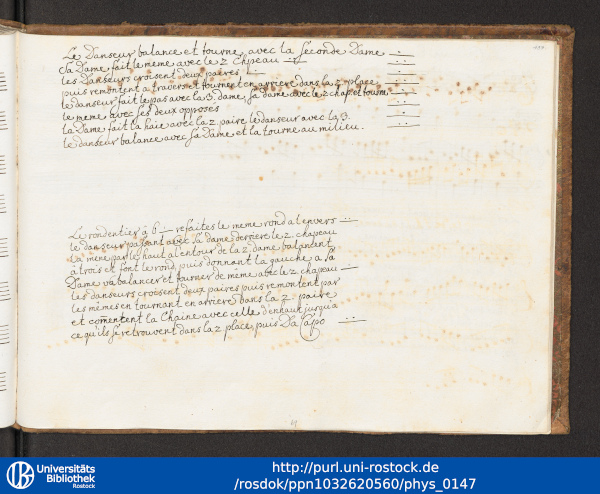 Le Danseur balance et tourne avec la seconde Dame
Sa Dame fait le meme avec le 2 Chpeau
les Danseurs croisent deux paires
puis remontent a travers et tournent en arriere dans la 2 place
le danseur fait le pas avec la 3. dame, sa dame avec le 2 chap. et tourne
le meme avec ses deux opposes
la Dame fait la haie avec la 2 paire le danseur avec la 3.
le danseur balance avec sa Dame et la tourne au milieu.
Le rond entier à 6 refaites le meme rond a l envers
le danseur passant avec sa dame derriere le 2 chapeau
la mene par le haut al entour de la 2 dame balancent
à trois et font le rond, puis donnant la gauche a sa
Dame va balancer et tourner de même avec le 2 chapeau
les danseurs croisent deux paires puis remontent par
les mêmes en tournant en arriere dans la 2 paire
et comentent la Chaine avec celle d'enhaut jusqu'a
ce qu'ils se retrouvent dans la 2 place, puis Da Capo
UB
Universitäts
Bibliothek
Rostock
http://purl.uni-rostock.de
/rosdok/ppn1032620560/phys_0147